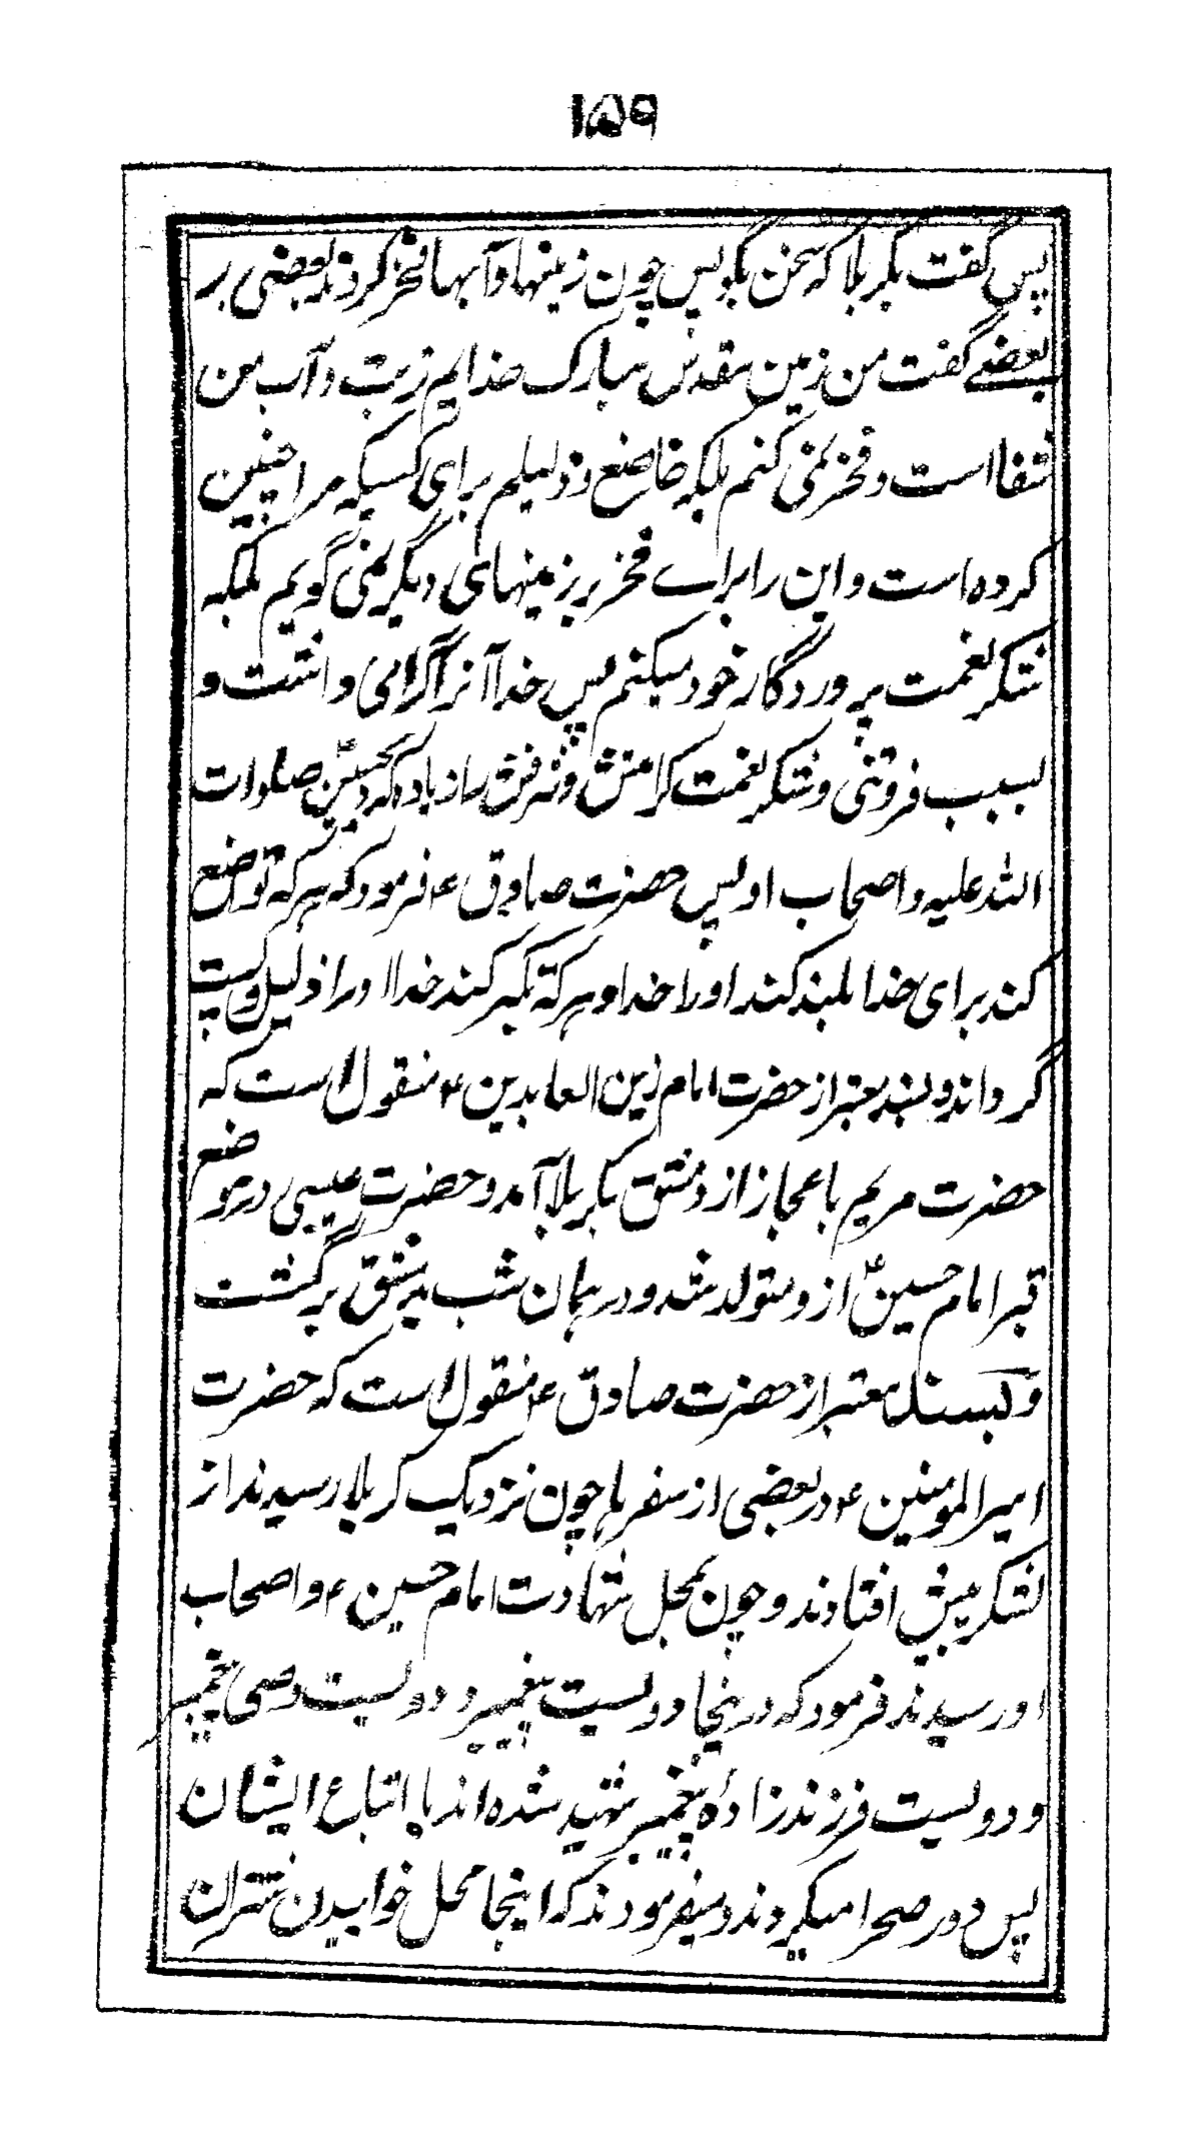 ۱۵۹
پس گفت بکربلا که سخن بگو پس چون زمینها و آبها فخر کردند بعضی بر
بعضے گفت من زمین مقدس مبارک خدایم تربت و آب من
شفا است و فخر نمی کنم بلکه خاضع و ذلیلم برای کسیکه مرا چنین
کرده است و این را برای فخر بر زمینهای دیگر نمی گویم بلکه
شکر نعمت پروردگار خود میکنم پس خدا آنرا گرامی داشت و
بسبب فروتنی و شکر نعمت کرامتش و شرفش را زیاده کرد بحسینؑ صلوات
الله علیه و اصحاب او پس حضرت صادق ؑ فرمود که هر که تواضع
کند برای خدا بلند کند او را خدا و هر که تکبر کند خدا او را ذلیل و پست
گرداند و بسند معتبر از حضرت امام زین العابدین ؑ منقول است که
حضرت مریم باعجاز از دمشق بکربلا آمد و حضرت عیسی در موضع
قبر امام حسینؑ ازو متولد شد و در همان شب بدمشق برگشت
و بسند معتبر از حضرت صادق ؑ منقول است که حضرت
امیرالمومنین ؑ در بعضی از سفرها چون نزدیک کربلا رسیدند از
لشکر پیش افتادند و چون بمحل شهادت امام حسین ؑ و اصحاب
او رسیدند فرمود که درینجا دویست پیغمبر و دویست وصی پیغمبر
و دویست فرزندزادهٔ پیغمبر شهید شده اند با اتباع ایشان
پس دور صحرا میگردند و میفرمودند که اینجا محل خوابیدن شتران